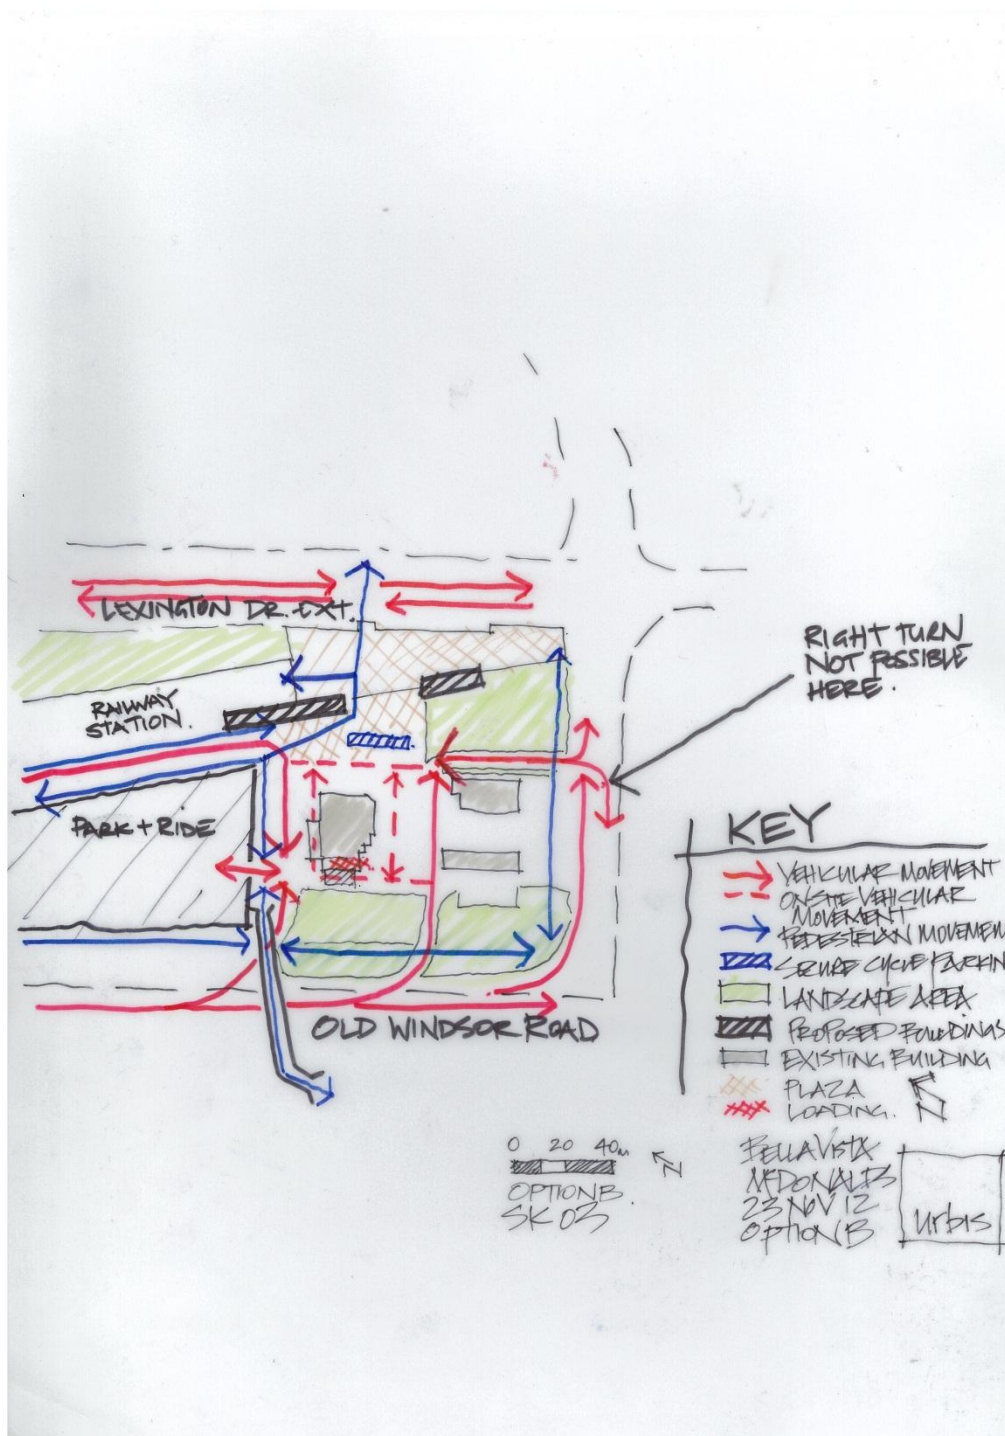 LEXINGTON DR. EXT.
RAILWAY
STATION.
PARK + RIDE
OLD WINDSOR ROAD
RIGHT TURN
NOT POSSIBLE
HERE.
KEY
VEHICULAR MOVEMENT
ONSITE VEHICULAR
MOVEMENT
PEDESTRIAN MOVEMEN
SECURE CYCLE PARKIN
LANDSCAPE AREA
PROPOSED BUILDINGS
EXISTING BUILDING
PLAZA
LOADING.
N
0 20 40m
N
OPTION B.
SK 03
BELLA VISTA
MCDONALDS
23 NOV 12
OPTION B
urbis